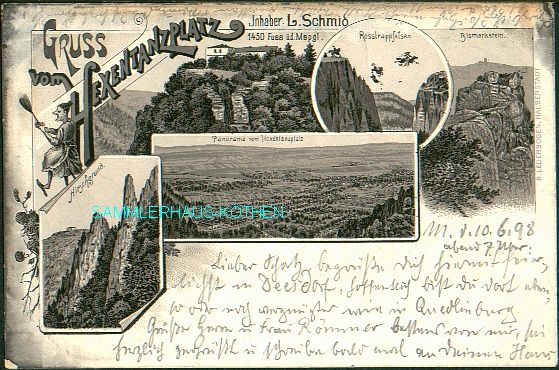 GRUSS
VOM HEXENTANZPLATZ
Inhaber: L. Schmid
1450 Fuss üd. Mspgl.
Rosstrappfelsen
Bismarkstein.
Panorama vom Hexentanzplatz
Hirschgrund.
R. LEDERBOGEN, HALBERSTADT.
SAMMLERHAUS-KÖTHEN
M. d. 10.6.98
abend 7 Uhr.
Lieber Schatz, begrüße Dich hiermit
lichst in Deesdorf, hoffentlich bist du dort eben
so oder noch vergnügter wie in Quedlinburg
Grüße Herrn u Frau Römmer bestens von mir, sei
herzlich gegrüßt u schreibe bald mal an deinen Hans